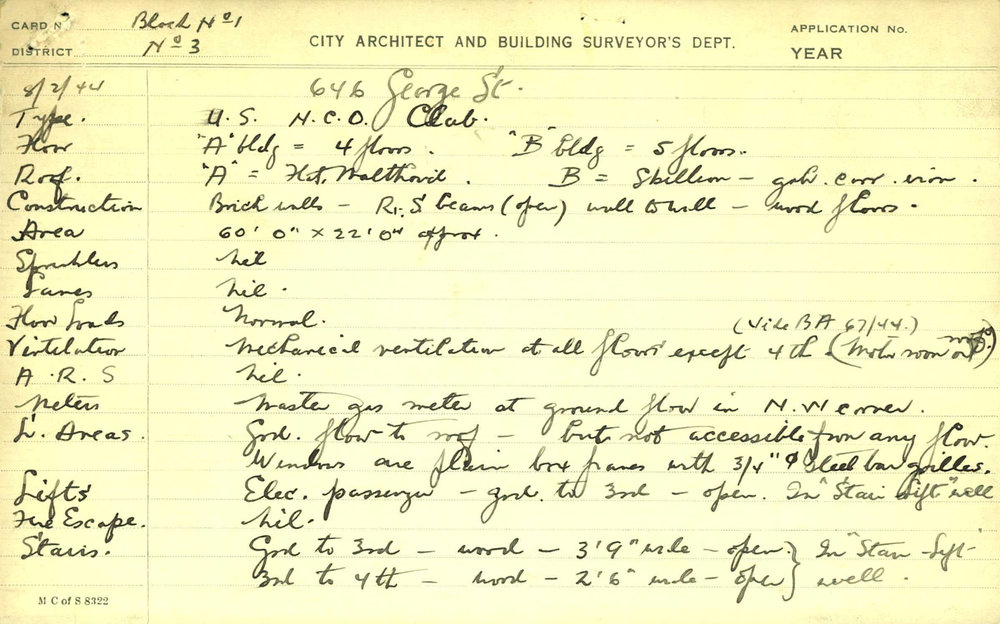 CARD No Block No 1
DISTRICT No 3
CITY ARCHITECT AND BUILDING SURVEYOR'S DEPT.
APPLICATION No.
YEAR
8/2/44 646 George St.
Type. U.S. N.C.O. Club.
Floor "A" bldg = 4 floors. "B" bldg = 5 floors.
Roof. "A" = Flat, Malthoid. B = Skillion - galv. corr. iron.
Construction Brick walls - R.S beams (open) wall to wall - wood floors.
Area 60' 0" x 22' 0" approx.
Sprinklers nil
Lanes nil.
Floor Loads Normal.
(Vide BA 67/44.)
Ventilation Mechanical ventilation at all floors except 4th (Motor room on roof.)
A.R.S nil.
Meters Master gas meter at ground floor in N.W corner.
L. Areas. Grd. floor to roof - but not accessible from any floor.
Windows are plain box frames with 3/4" φ steel bar grilles.
Lifts Elec. passenger - grd. to 3rd - open. In "Stair Lift" well
Fire Escape. nil.
Stairs. Grd to 3rd - wood - 3'9" wide - open } In "Stair-Lift"
3rd to 4th - wood - 2'6" wide - open } well.
M C of S 8322